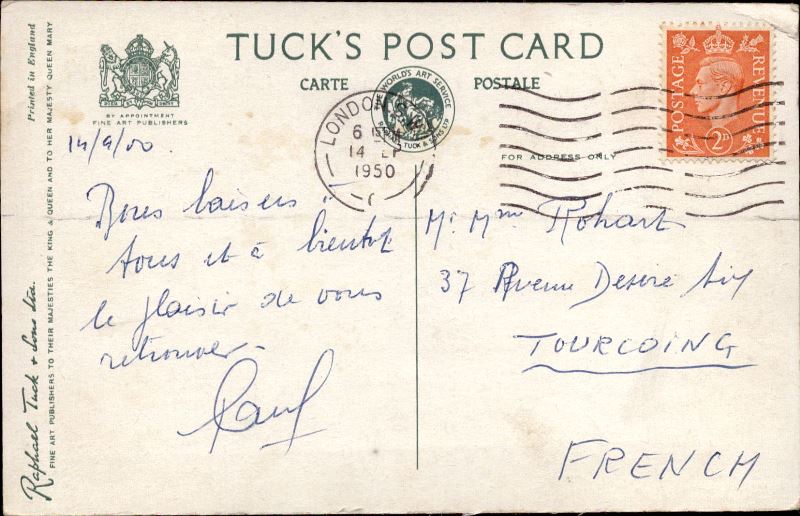 Printed in England
Raphael Tuck & Sons Ltd.
FINE ART PUBLISHERS TO THEIR MAJESTIES THE KING & QUEEN AND TO HER MAJESTY QUEEN MARY
BY APPOINTMENT
FINE ART PUBLISHERS
TUCK'S POST CARD
CARTE POSTALE
THE WORLD'S ART SERVICE
RAPHAEL TUCK & SONS LTD
LONDON
14
1950
POSTAGE REVENUE
2D
FOR ADDRESS ONLY
14/9/50.
Bons baisers à
tous et à bientôt
le plaisir de vous
retrouver.
Paul
Mr Mme Rohart
37 Avenue Desire
TOURCOING
FRENCH